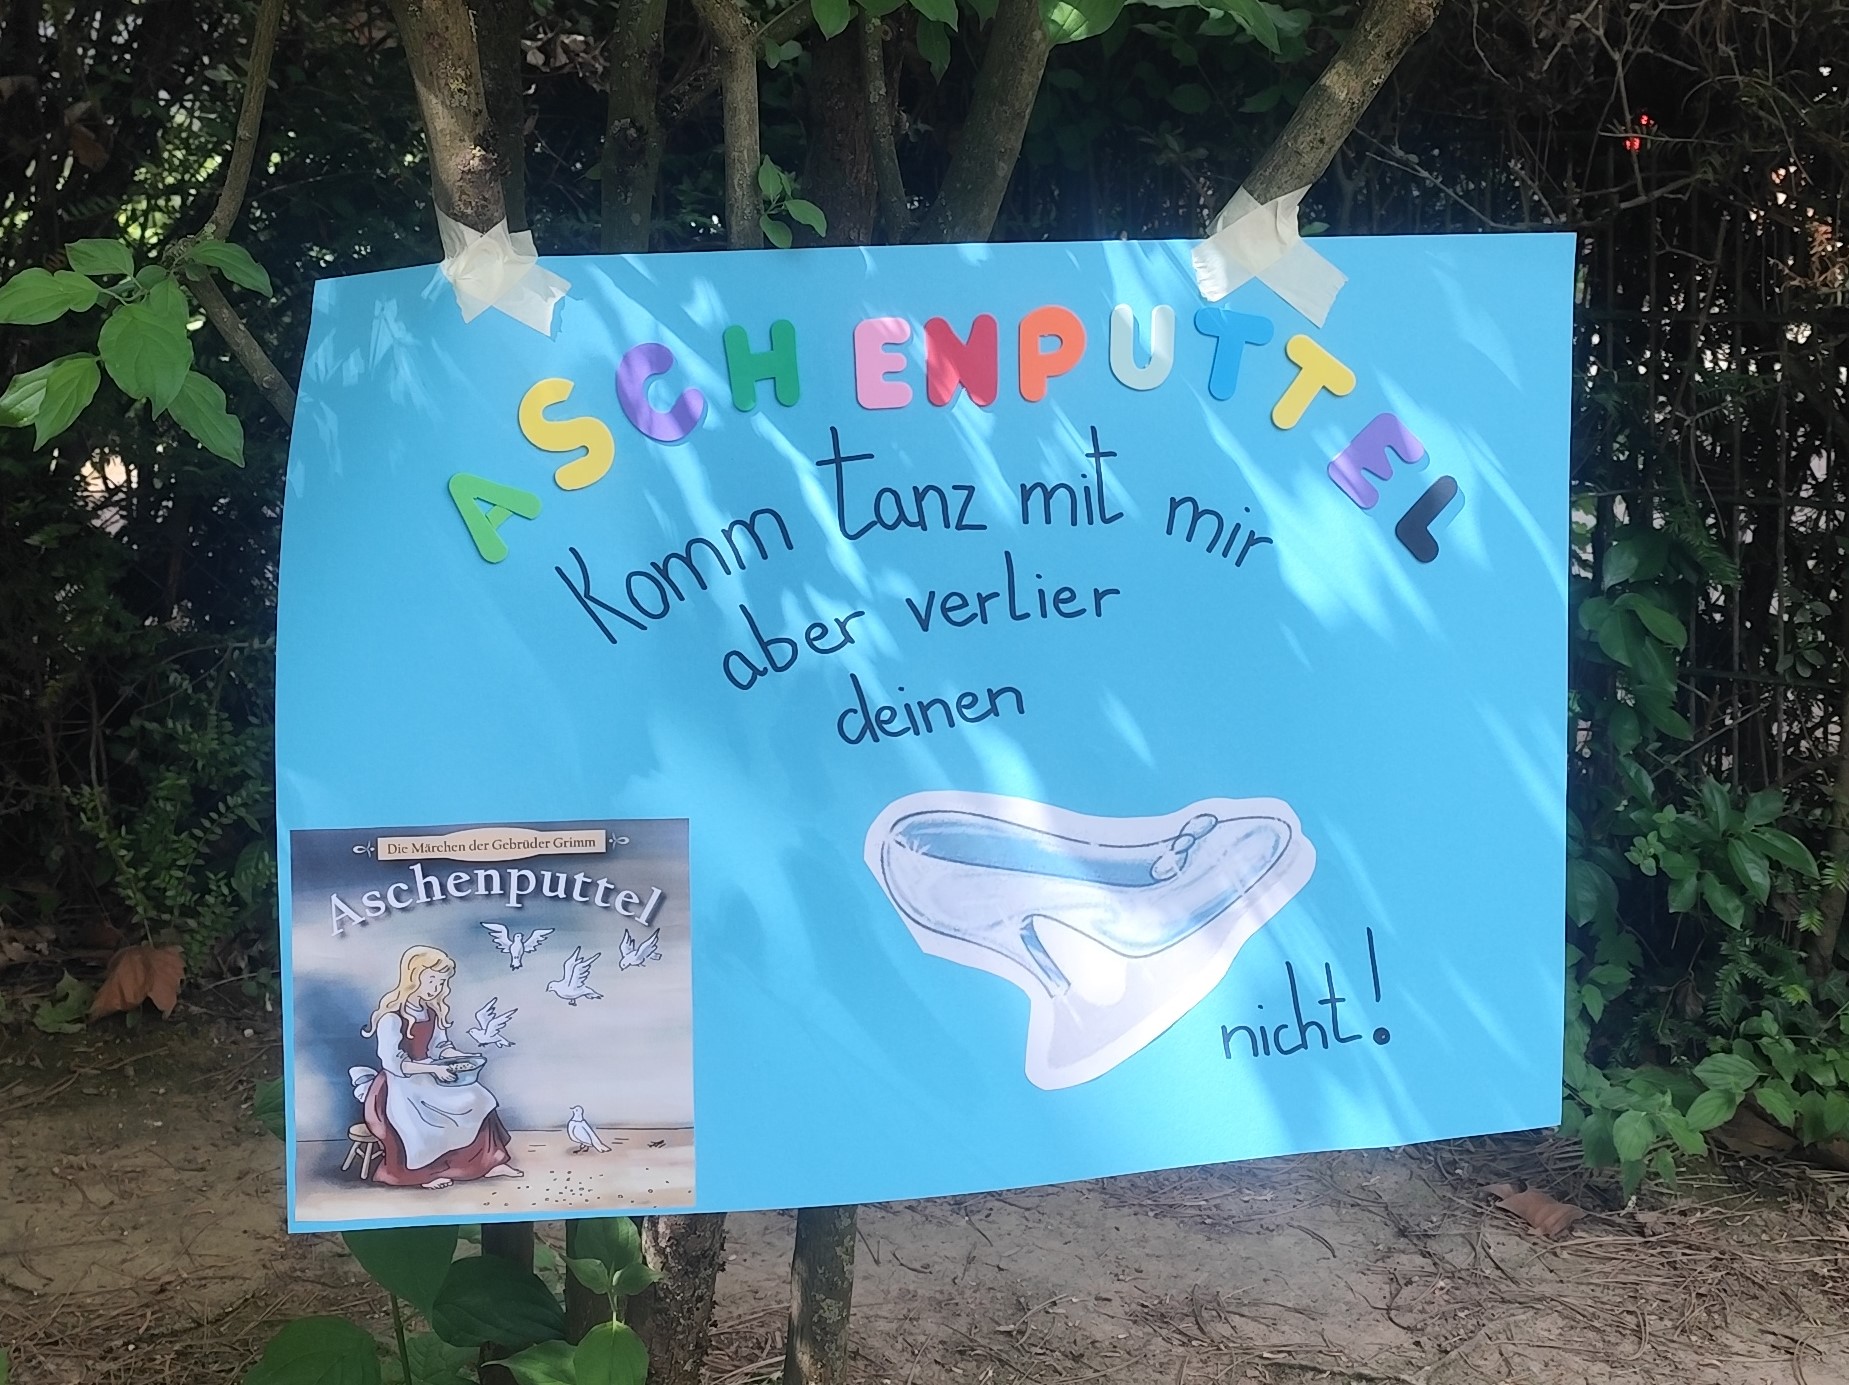 ASCHENPUTTEL
Komm tanz mit mir
aber verlier
deinen
nicht!
Die Märchen der Gebrüder Grimm
Aschenputtel